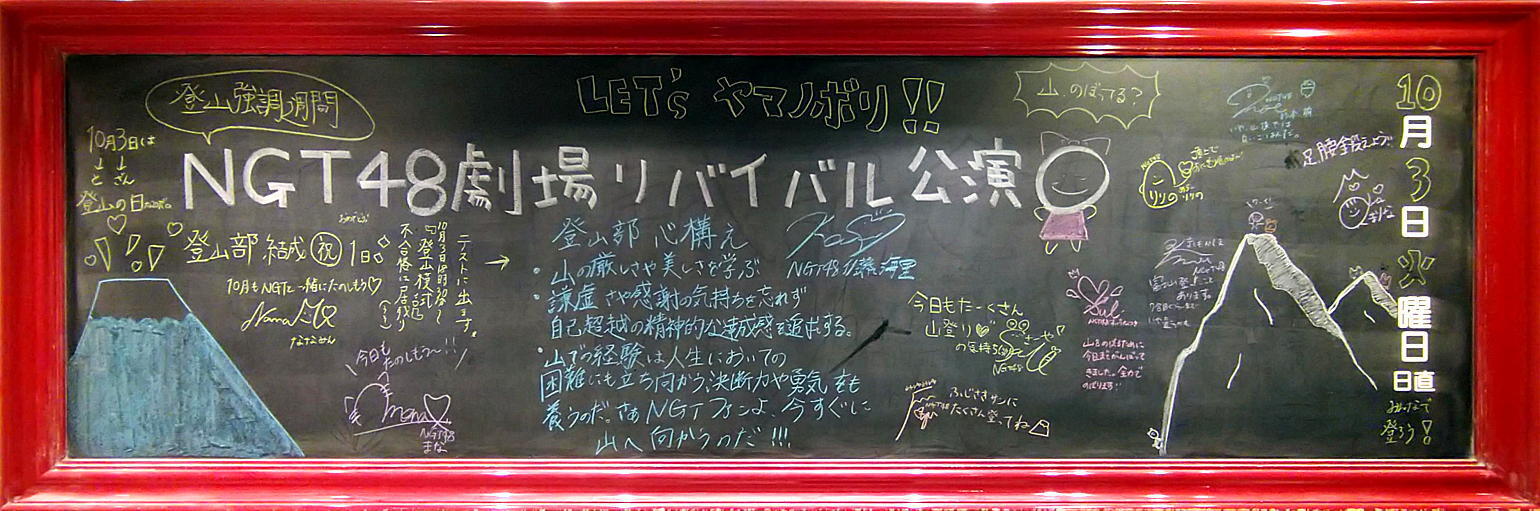 登山強調週間
LET's ヤマノボリ!!
山、のぼってる?
10月3日は
↓ ↓
と さん
登山の日
NGT48劇場リバイバル公演
登山部 結成 ㊗ 1日
10月もNGTと一緒にたのしもう♡
Nana
ななみん
10月3日18時30分〜
『登山模試』
不合格は居残り
テストに出ます。
→
今日も
たのしもう〜!!
mana
NGT48
まな
登山部 心構え
NGT48 加藤海里
・山の厳しさや美しさを学ぶ
・謙虚さや感謝の気持ちを忘れず
自己超越の精神的な達成感を追求する。
・山での経験は人生においての
困難にも立ち向かう決断力や勇気をも
養うのだ。さぁNGTファンよ、今すぐに
山へ向かうのだ!!!
今日もたーくさん
山登り♡
の気持ち
NGT48
ふじさきサンに
たくさん登ってね
りりの
りりの
NGT48
山をのぼるために
今日までがんばって
きました。全力で
のぼります!!
富士山登ったこと
あります。
足腰鍛えよう
まりな
10
月
3
日
火
曜
日
日直
みんなで
登ろう!